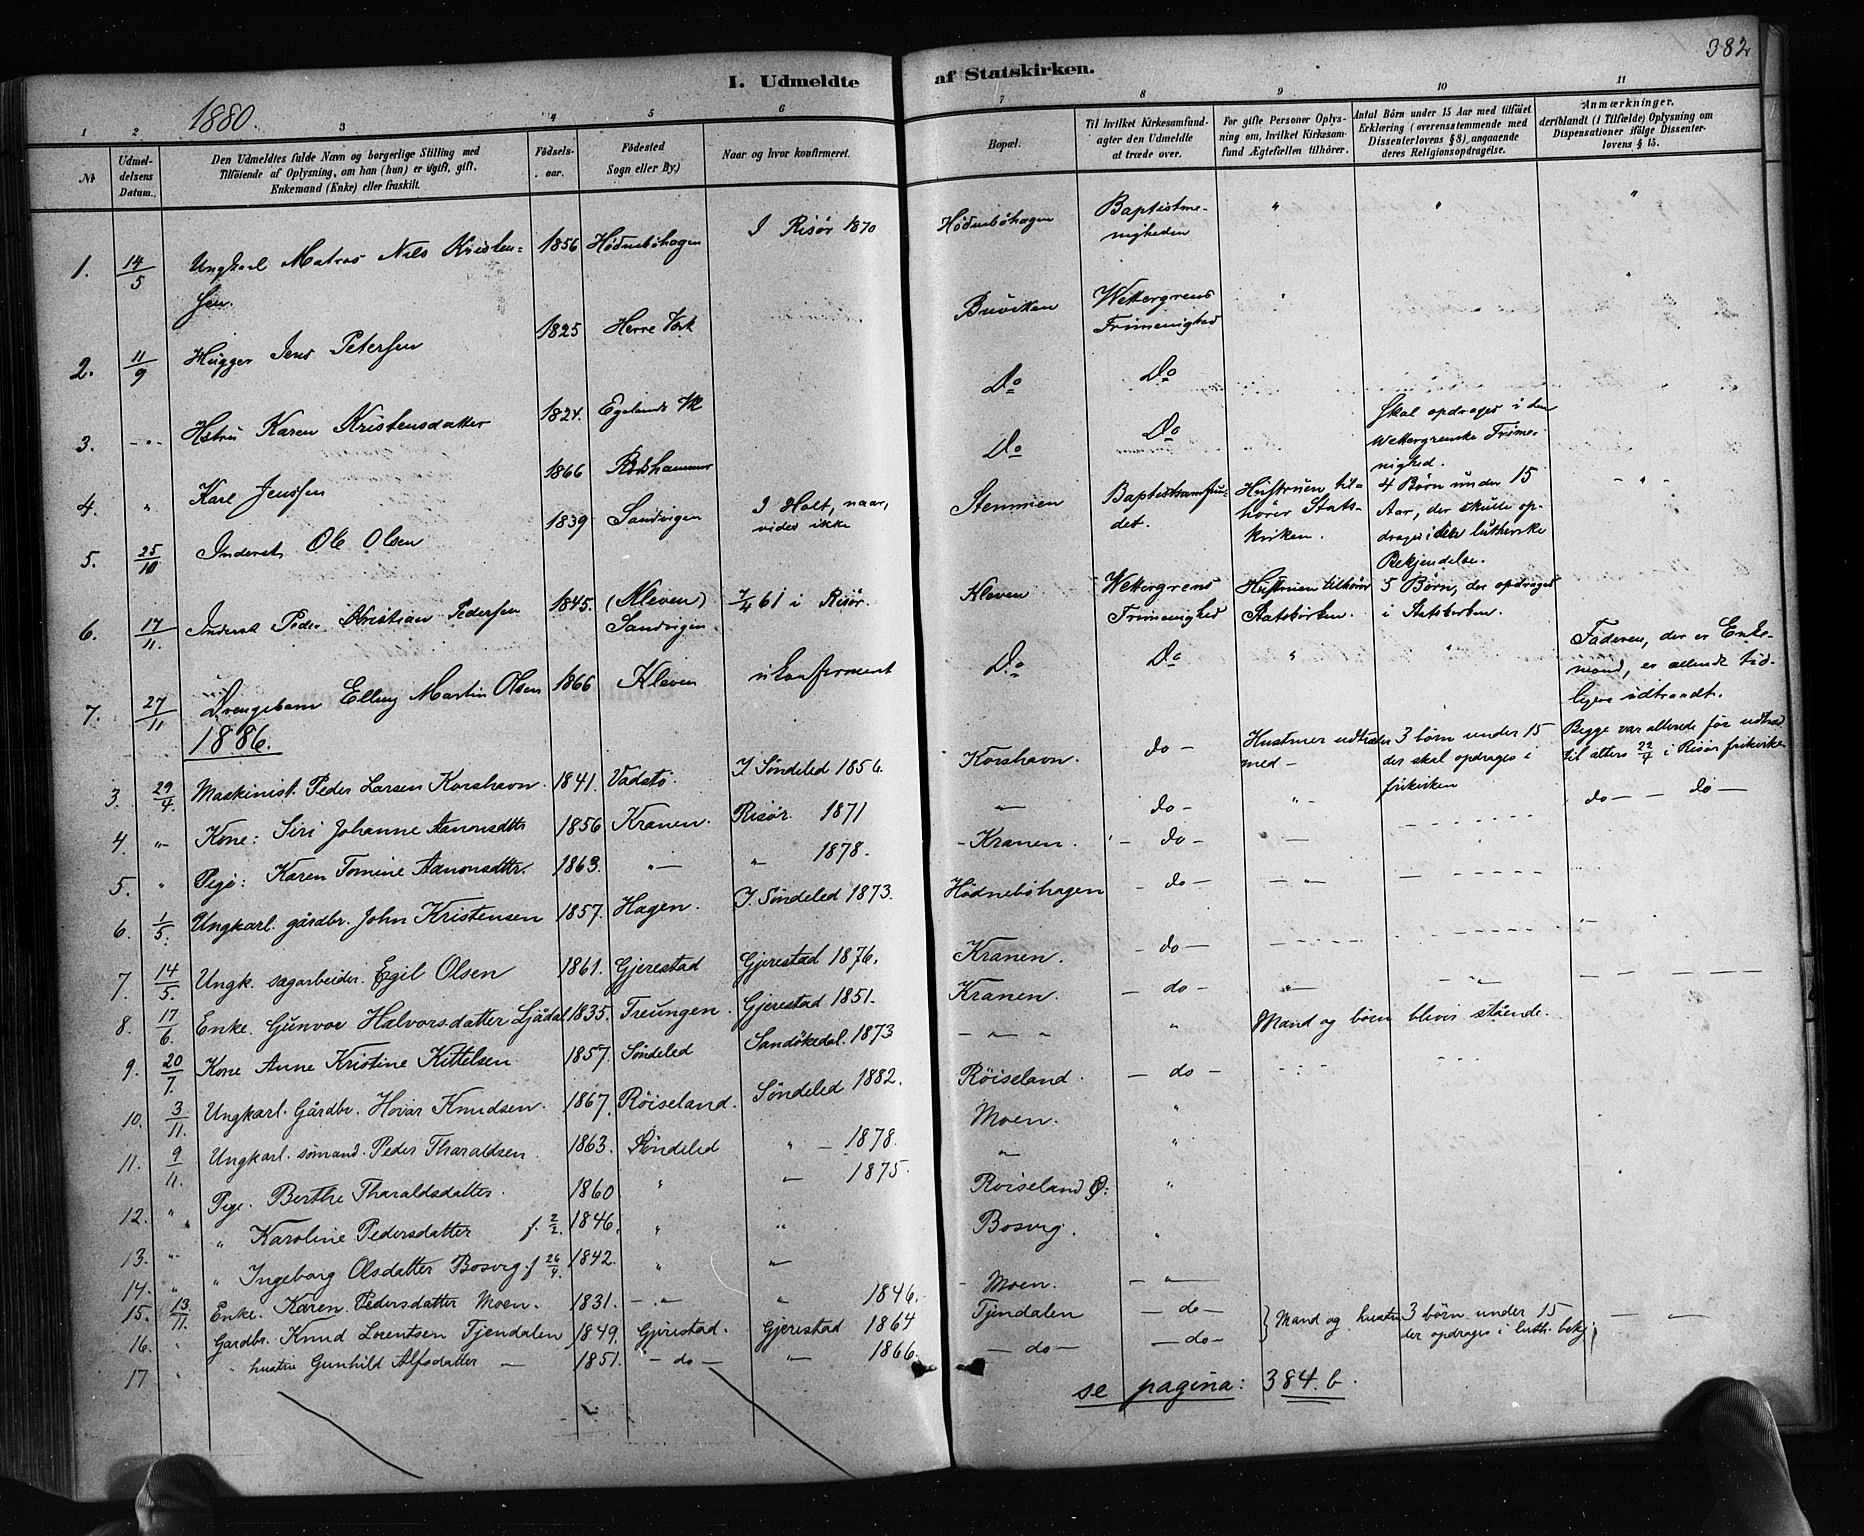 382
I. Udmeldte af Statskirken.
1880.
1 2 3 4 5 6 7 8 9 10 11
No
Udmeldelsens Datum.
Den Udmeldtes fulde Navn og borgerlige Stilling med
Tilføiende af Oplysning, om han (hun) er ugift, gift,
Enkemand (Enke) eller fraskilt.
Fødsels-
aar.
Fødested
Sogn eller By.)
Naar og hvor konfirmeret.
Bopæl.
Til hvilket Kirkesamfund-
agter den Udmeldte
at træde over.
For gifte Personer Oplys-
ning om, hvilket Kirkesam-
fund Ægtefællen tilhører.
Antal Børn under 15 Aar med tilføiet
Erklæring (overensstemmende med
Dissenterloven § 8) angaaende
deres Religionsopdragelse.
Anmærkninger,
deriblandt (i Tilfælde) Oplysning om
Dispensationer ifølge Dissenter-
lovens § 15.
1. 14/5 Ungkarl Matros Nils Kristen-
sen. 1856 Hødnebøhagen I Risør 1870 Hødnebøhagen Baptistme-
nigheden " " "
2. 11/9 Hugger Jens Petersen 1825 Herre Værk Buviken Wettergrens
Frimenighed " "
3. - " - Hstru Karen Kristensdatter 1824. Egelands Vk Do Do
4. " Karl Jenssen 1866 Rødshammer Do Do Skal opdrages i den
Wettergrenske Frime-
nighed.
5. 25/10 Inderst Ole Olsen 1839 Sandvigen I Holt, naar,
vides ikke Stemmen Baptistsamfun-
det. Hustruen til-
hører Stats-
kirken. 4 Børn under 15
Aar, der skulle op-
drages i den lutherske
Bekjendelse. - " -
6. 17/11. Inderst Peder Kristian Pedersen 1845. (Kleven)
Sandvigen. 7/4 61 i Risør. Kleven Wettergrens
Frimenighed Hustruen tilhører
Statskirken. 5 Børn, der opdrages
i Statskirken.
7. 27/11 Drengebarn Elling Martin Olsen 1866 Kleven ukonfirmeret Do Do " " Faderen, der er Enke-
mand, er allerede tid-
ligere udtraadt.
1886.
3. 29/4. Maskinist. Peder Larsen Korshavn. 1841. Vadstø. I Søndeled 1856. Korshavn. do - Hustruen udtræder
med - 3 børn under 15
der skal opdrages i
frikirken Begge var allerede før udtraadt
til alters 22/4 i Risør frikirke
4. " - Kone: Siri Johanne Aanonsdtter 1856 Kranen. Risør. 1871 - " - do - " - do - - do -
5. " Pige: Karen Tomine Aanonsdtter. 1863. - " - " 1878. - Kranen. - do - -
6. 1/5. Ungkarl. gårdbr. John Kristensen 1857. Hagen. I Søndeled 1873. Hødnebøhagen - do - - " - -
7. 14/5. Ungk. sagarbeider. Egil Olsen 1861. Gjerestad Gjerestad 1876. Kranen. - do -
8. 17/6. Enke. Gunvor Halvorsdatter Ljådal 1835. Treungen. Gjerestad 1851. Kranen. - do - " - " -
9. 20/7 Kone Anne Kristine Kittelsen 1857. Søndeled Sandøkedal. 1873 - " - " Mand og børn blive stående.
10. 3/11. Ungkarl. Gårdbr. Hovar Knudsen. 1867. Røiseland. Søndeled 1882. Røiseland. - do -
11. 9/11. Ungkarl. sømand. Peder Tharaldsen. 1863. Søndeled " - 1878. Moen. "
12. " Pige. Berthe Tharaldsdatter. 1860 " " 1875. " "
13. " " Karoline Pedersdatter f. 2/2. 1846. " " Røiseland Ø: "
14. " " Ingeborg Olsdatter Bosvig. f 26/4. 1842. " " Bosvig. "
15. 13/11. Enke. Karen Pedersdatter Moen. 1831. - " - " 1846. Moen. - " -
16. " Gårdbr. Knud Lorentsen Tjendalen 1849. Gjerestad. Gjerestad 1864 Tjendalen - do - } Mand og hustru 3 børn under 15
der opdrages i luth. bekj. - -
17 " " hustru Gunhild Alfsdatter - 1851. - do - " 1866. - do - - do -
se pagina: 384. b.